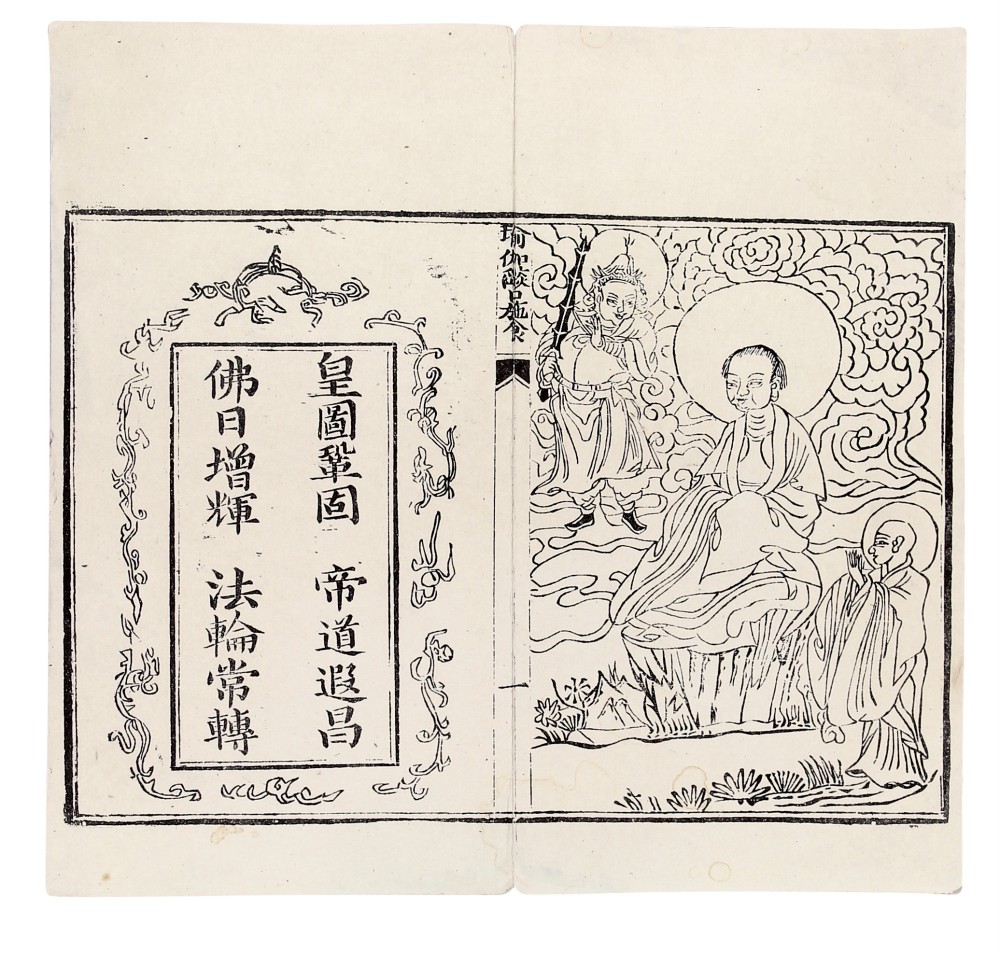 瑜伽燄口施食
一
皇圖鞏固 帝道遐昌
佛日增輝 法輪常轉